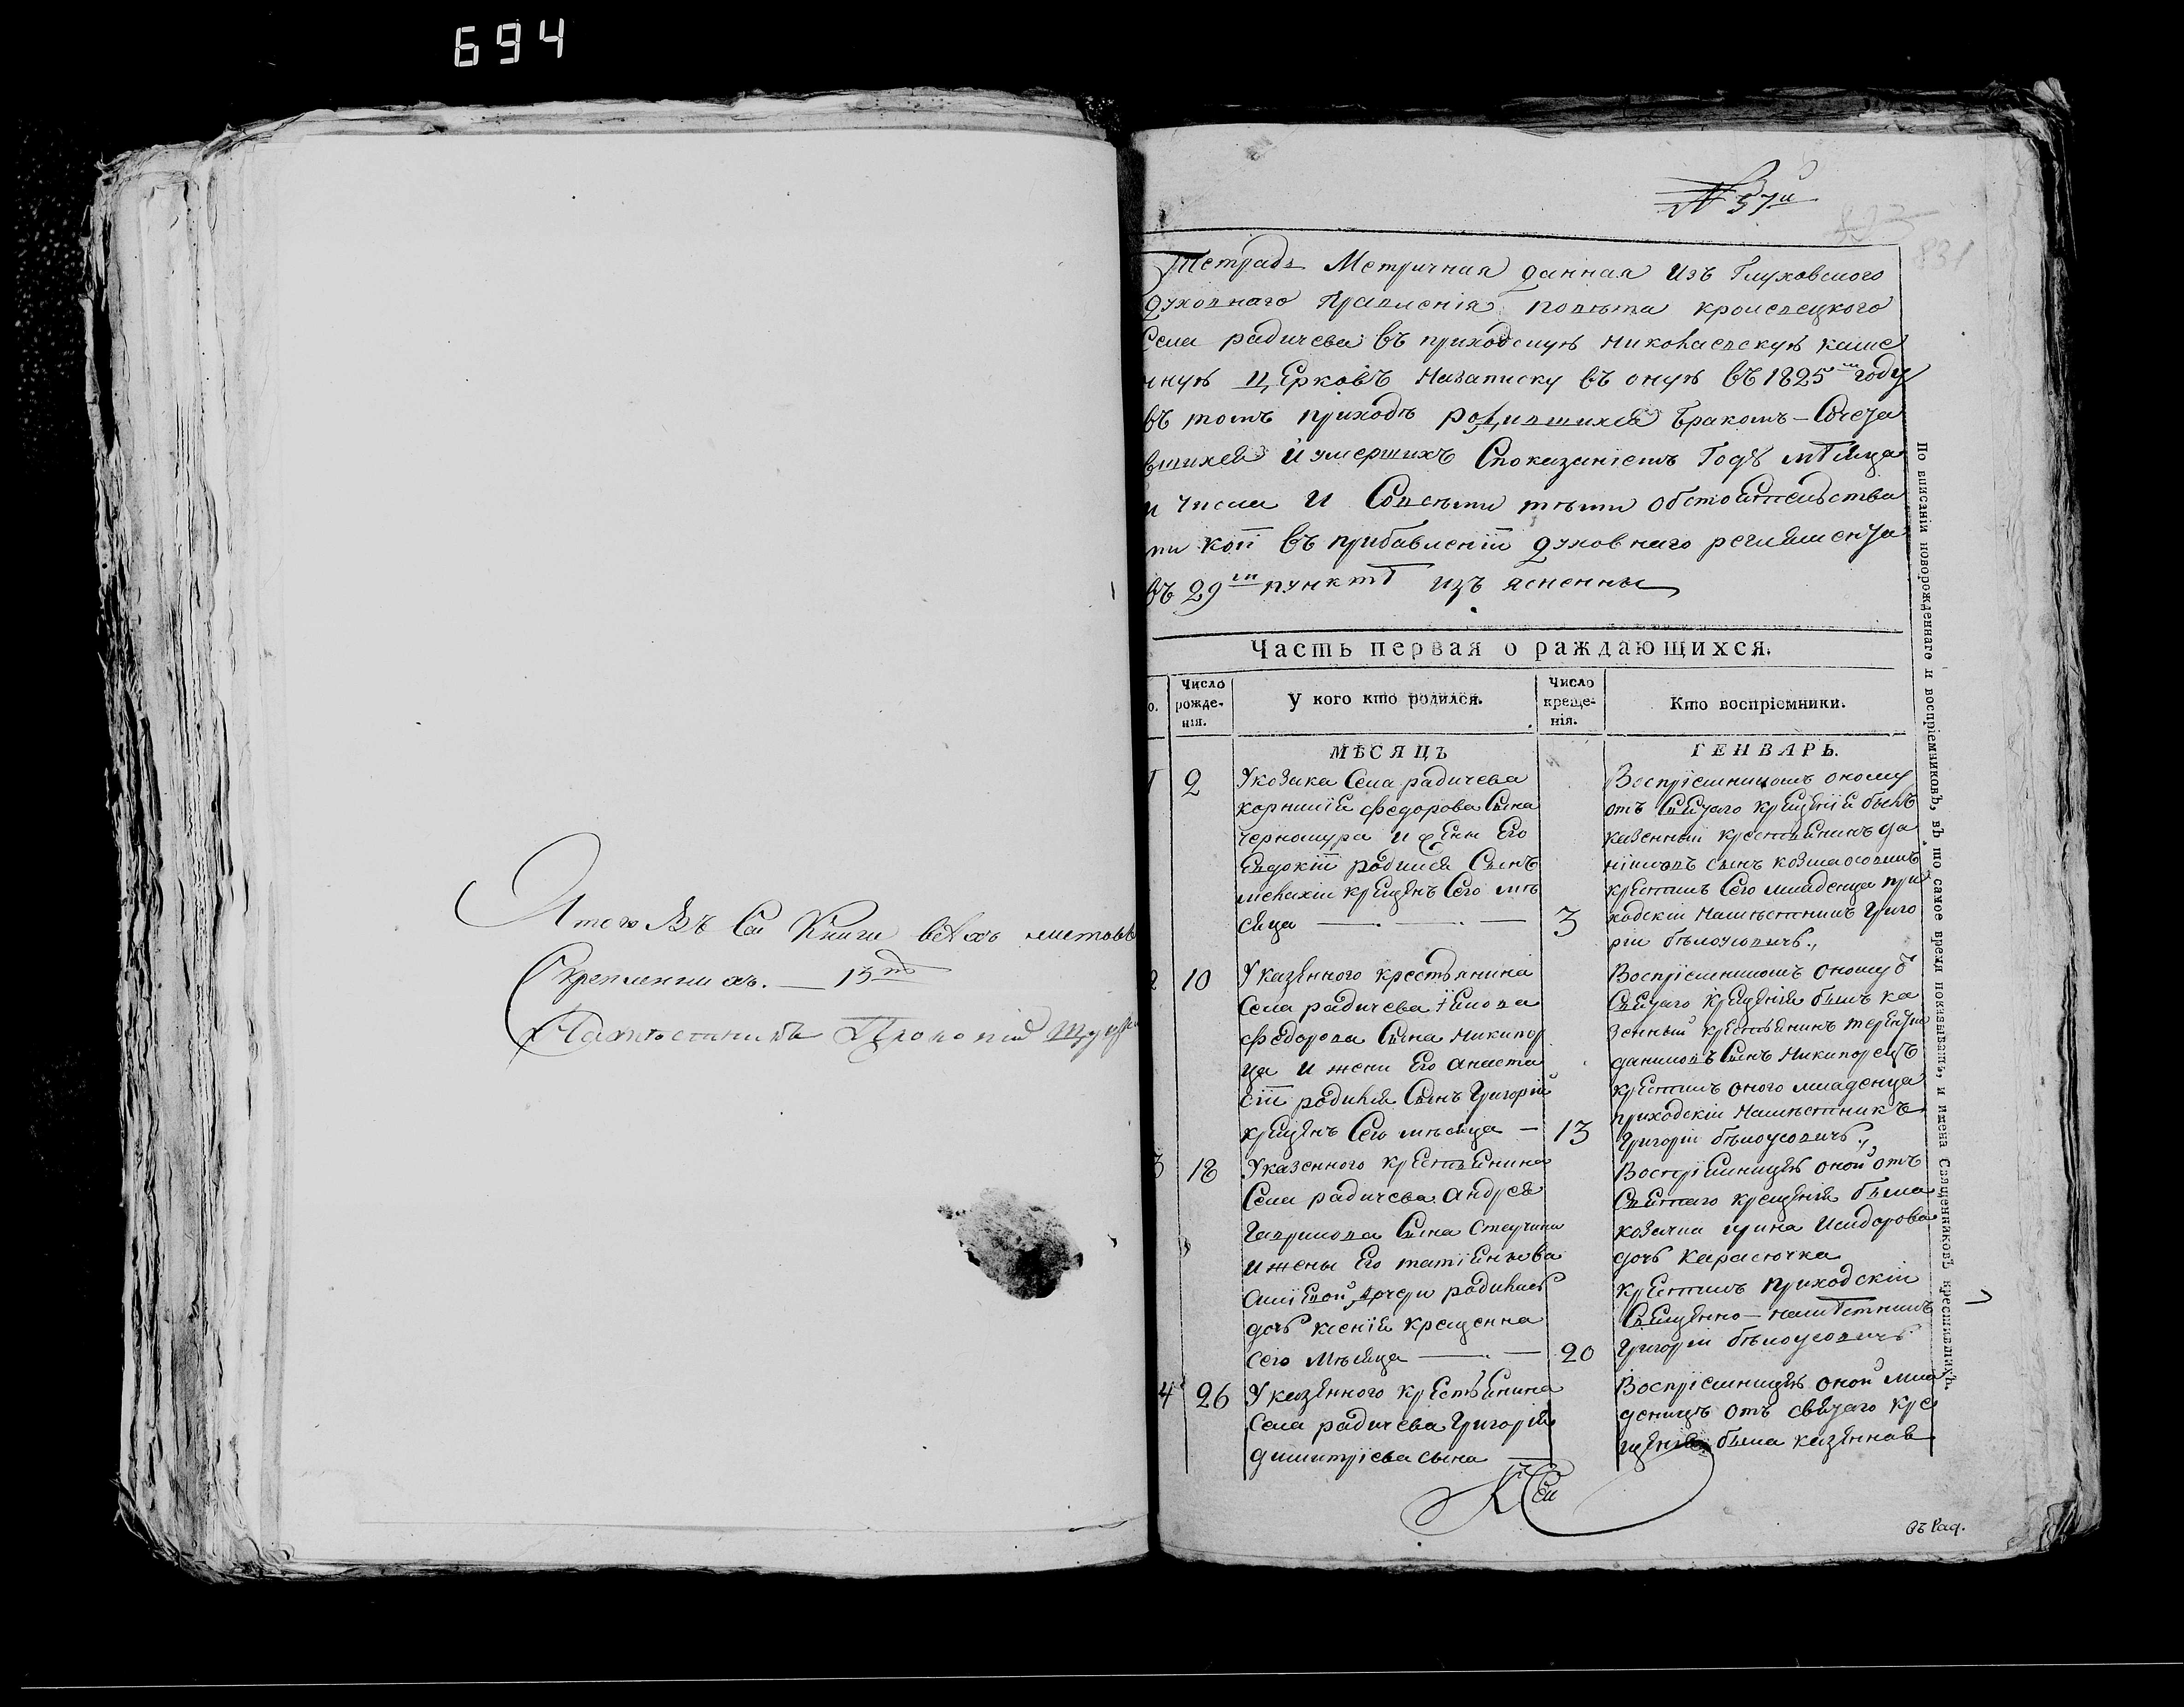 694
Итого Въ Сей Книги всехъ листовъ
Скрепленныхъ. — 13
Наместникъ Прокопій
№ 37й
831
Тетрадь Метричная данная изъ Глуховского
духовнаго Правленія повѣта кролевецкого
Села радичева въ приходскую николаевскую каме
нную Церковъ Назаписку въ оную въ 1825м году
въ томъ приходѣ родившихся бракомъ-Сочета
вшихся и умершихъ Споказаніемъ Годѣ мѣсяца
и числа и Совсѣми тѣми обстоятельства
ми кои въ прибавленіи духовнаго регламента
въ 29м пунктѣ изъясненны
Часть первая о раждающихся.
о.
Число рожде-нія.
У кого кто родился.
Число креще-нія.
Кто воспріемники.
МѢСЯЦЪ
ГЕНВАРЬ.
1 2
Укозака Села радичева
корнилія федорова Сына
Черношура и жени Его
Евдокіи родился Сынъ
крещенъ Сего мѣ
сяца — — 3
Воспріемникомъ оному
отъ Святаго крещенія былъ
казенный крестьянинъ да
ніловъ сынъ козма
крестилъ Сего младенца при
ходскій Намѣстникъ Григо
рій бѣлоусовичъ.,
2 10
Указенного крестьянина
Села радичева
федорова Сына Никипор
ца и жени Его анаста
сіи родился Сынъ Григорій
крещенъ Сего мѣсяца — 13
Воспріемникомъ оному
Святаго крещенія былъ ка
зенный крестьянинъ терентій
даниловъ Сынъ Никипорецъ
крестилъ оного младенца
приходскій Намѣстникъ
Григорій бѣлоусовичъ.,
3 18
Указенного крестьянина
Села радичева андрея
Гаврилова Сына
и жены Его татіяны
дочери родилась
дочь ксенія крещенна
сего мѣсяца — — 20
Воспріемницею оной отъ
Святаго крещенія была
козачка ирина Исидорова
дочь Карасючка
крестилъ приходскій
Священно-намѣстникъ
Григорій бѣлоусовичъ
4 26
Указенного крестьянина
Села радичева Григорія
димитріева сына
Воспріемницею оной мла
деницѣ отъ святаго кре
щенія была казенная
Къ Сей
въ Рад.
По вписаніи новорожденнаго и воспріемниковъ, въ то самое время показывать, и имена Священниковъ крестившихъ.